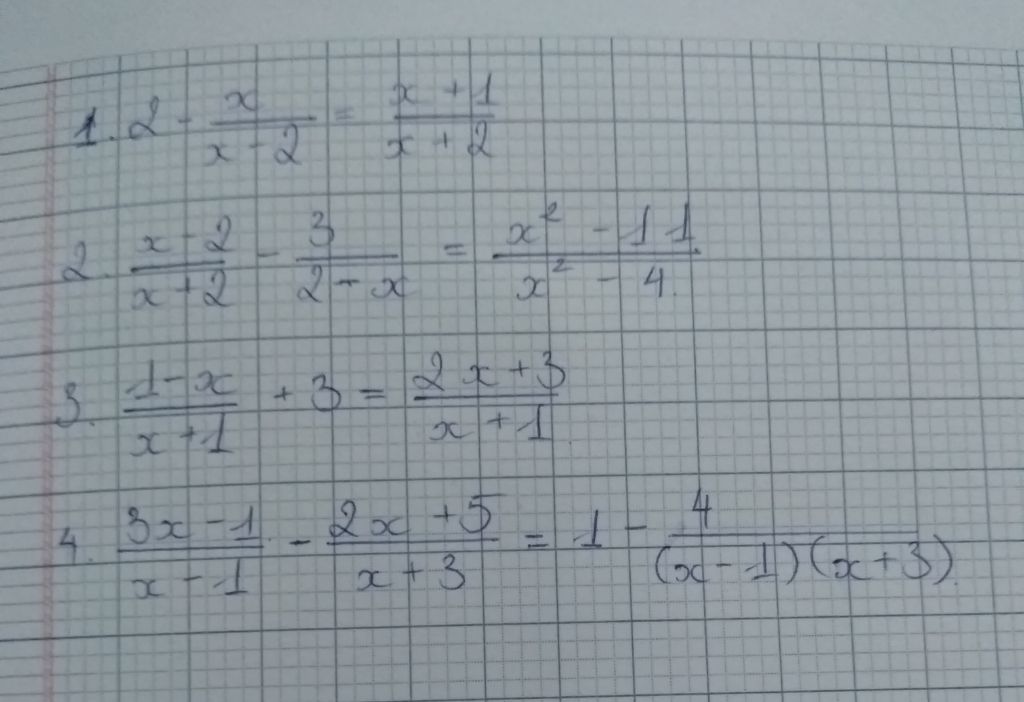 1. 2 - \frac{x}{x-2} = \frac{x+1}{x+2}
2. \frac{x-2}{x+2} - \frac{3}{2-x} = \frac{x^2-11}{x^2-4}
3. \frac{1-x}{x+1} + 3 = \frac{2x+3}{x+1}
4. \frac{3x-1}{x-1} - \frac{2x+5}{x+3} = 1 - \frac{4}{(x-1)(x+3)}